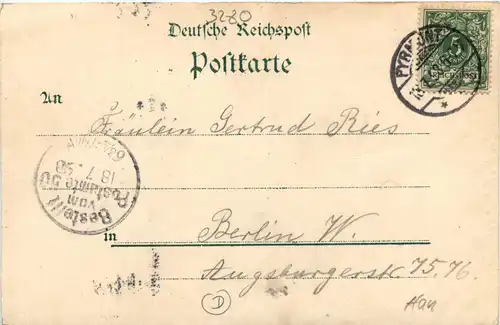 3280
Deutsche Reichspost
Postkarte
PYRMONT
5
An
Fräulein Gertrud Ries
Bestellt
vom
Postamte 50
18 7 98
in Berlin W.
Augsburgerstr. 75.76
D
Han